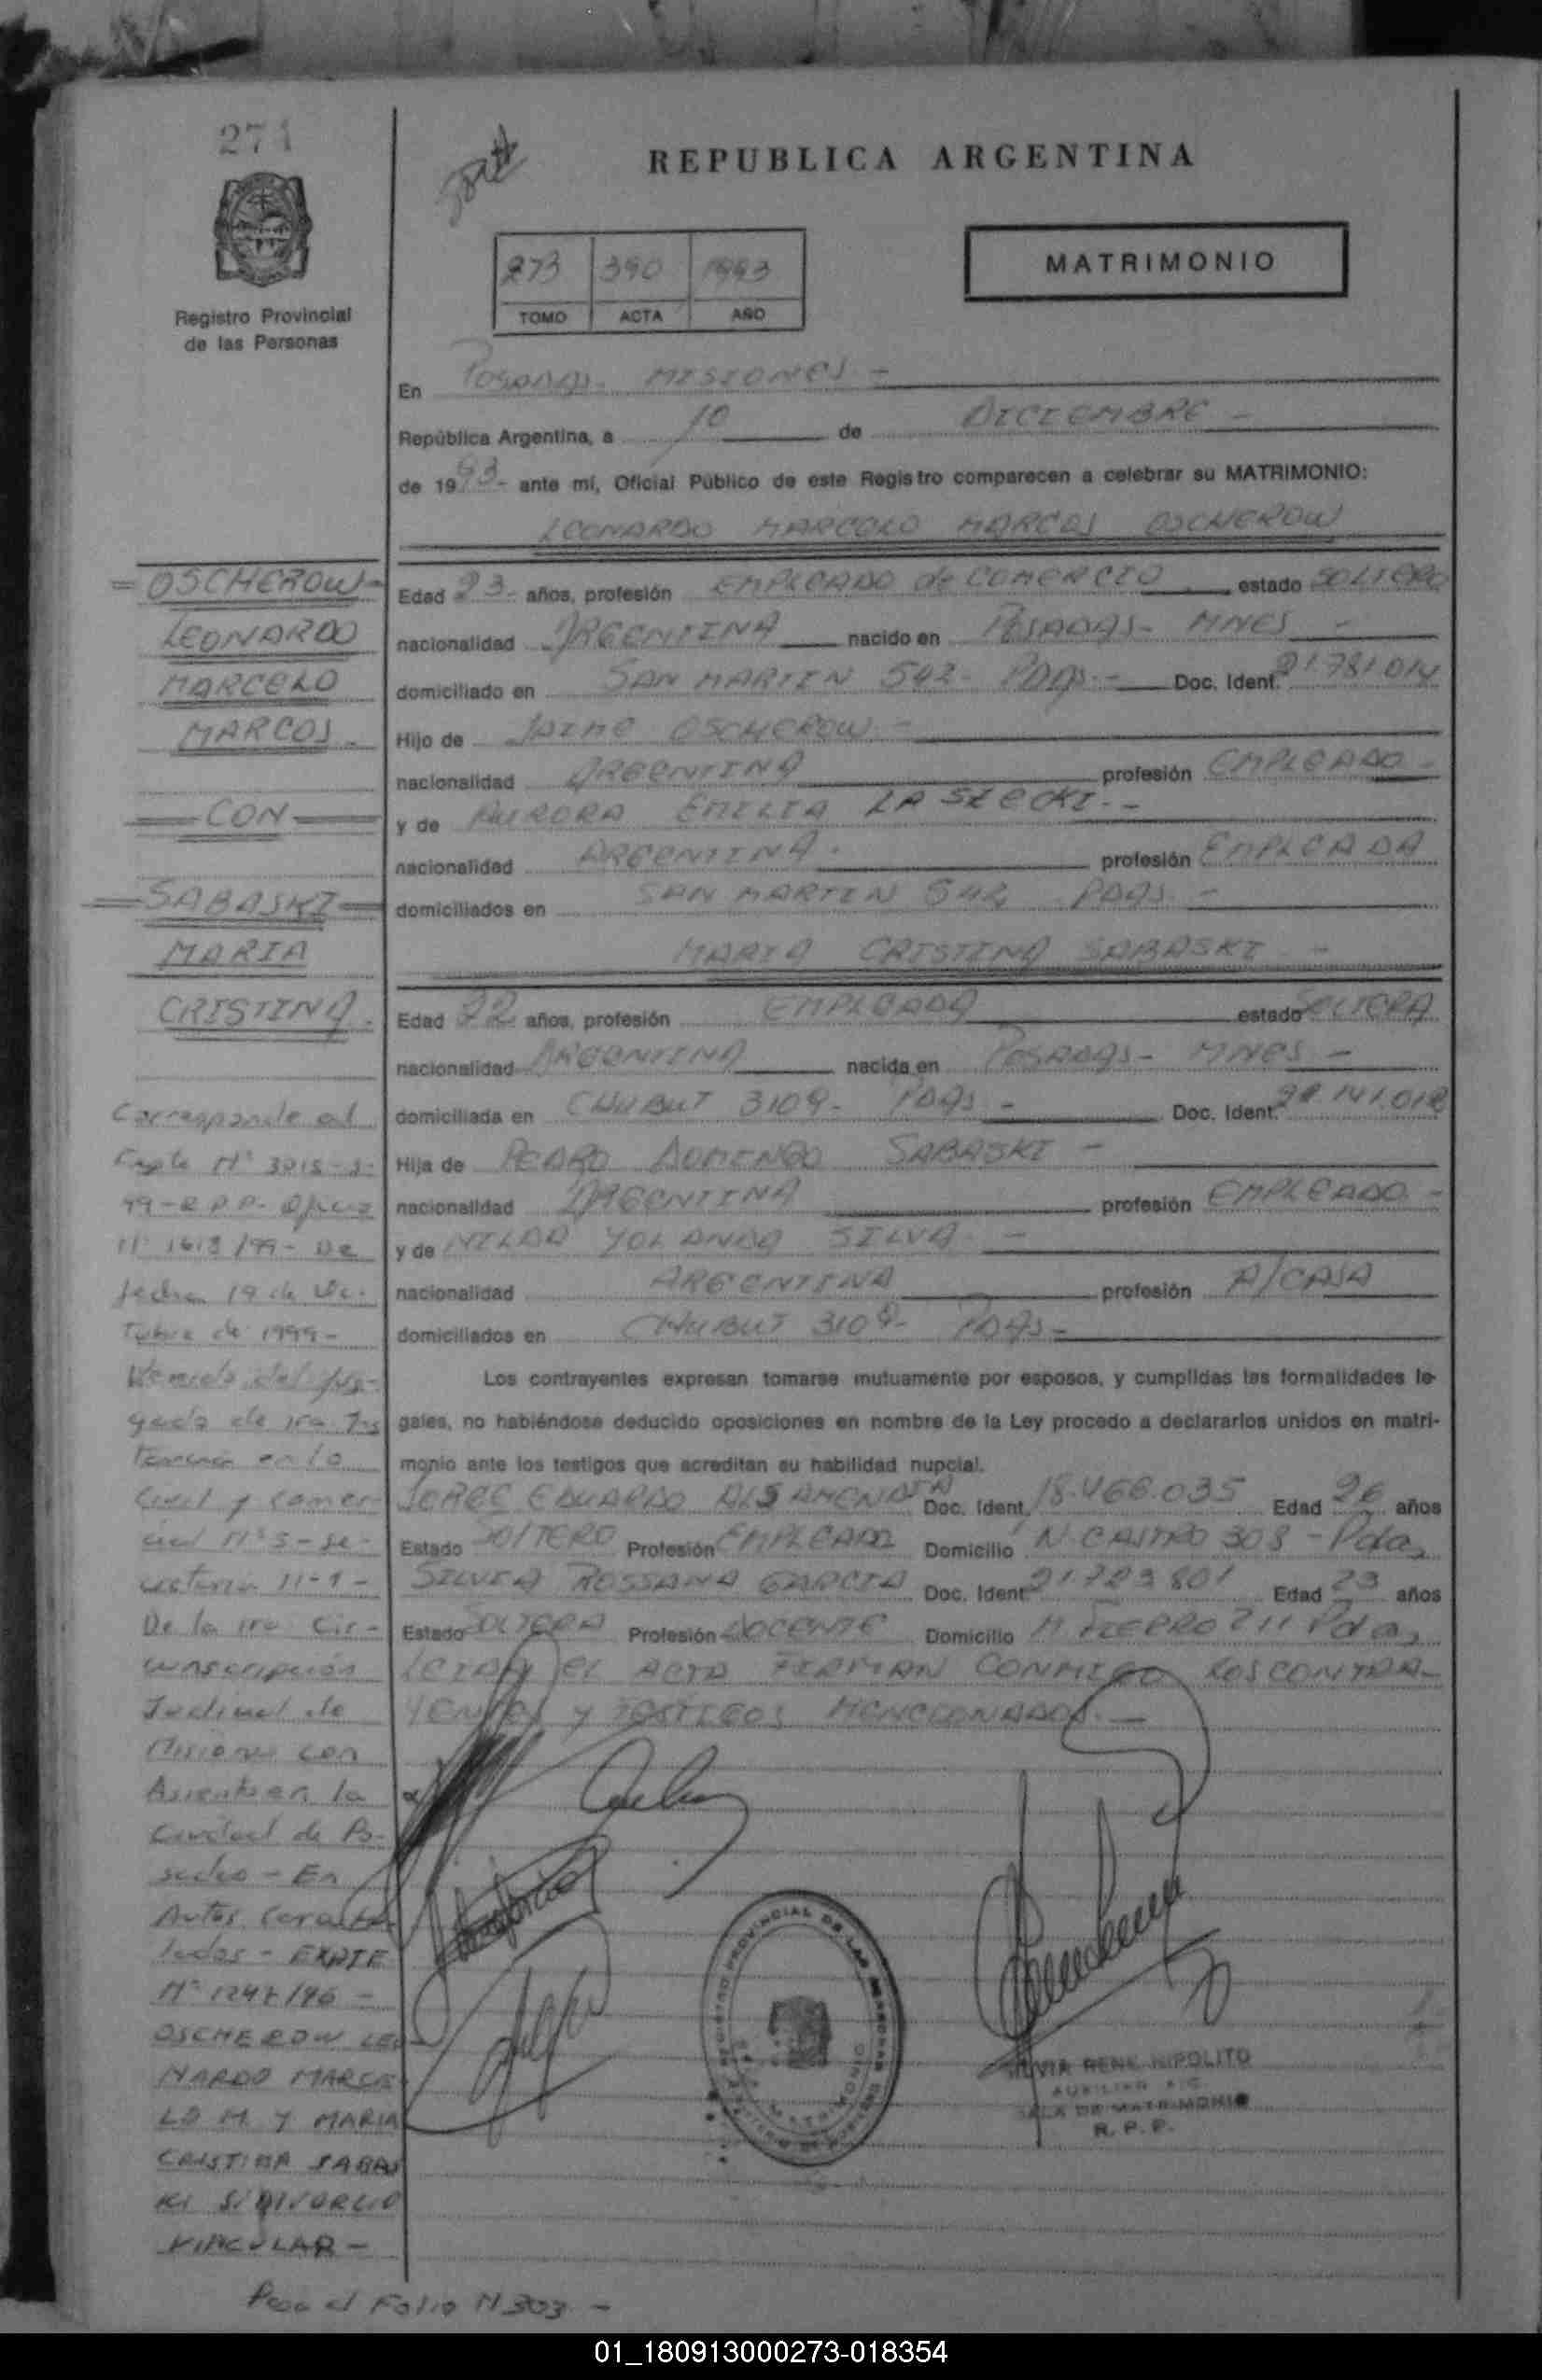 271
REPUBLICA ARGENTINA
273 390 1993
TOMO ACTA AÑO
MATRIMONIO
Registro Provincial
de las Personas
En Posadas. MISIONES -
República Argentina, a 10 de DICIEMBRE -
de 1993- ante mí, Oficial Público de este Registro comparecen a celebrar su MATRIMONIO:
LEONARDO MARCELO MARCOS OSCHEROW
Edad 23- años, profesión EMPLEADO de COMERCIO estado SOLTERO
nacionalidad ARGENTINA nacido en POSADAS- MNES -
domiciliado en SAN MARTIN 542- PDAS.- Doc. Ident. 21.781.014
Hijo de JAIME OSCHEROW.-
nacionalidad ARGENTINA profesión EMPLEADO -
y de AURORA EMILIA LASIECKI.-
nacionalidad ARGENTINA. profesión EMPLEADA
domiciliados en SAN MARTIN 542 PDAS. -
MARIA CRISTINA SABASKI -
Edad 22 años, profesión EMPLEADA estado SOLTERA
nacionalidad ARGENTINA nacida en POSADAS- MNES -
domiciliada en CHUBUT 3109- PDAS - Doc. Ident. 22.141.012
Hija de PEDRO DOMINGO SABASKI -
nacionalidad ARGENTINA profesión EMPLEADO -
y de NILDA YOLANDA SILVA -
nacionalidad ARGENTINA profesión A/CASA
domiciliados en CHUBUT 3109- PDAS-
Los contrayentes expresan tomarse mutuamente por esposos, y cumplidas las formalidades le-
gales, no habiéndose deducido oposiciones en nombre de la Ley procedo a declararlos unidos en matri-
monio ante los testigos que acreditan su habilidad nupcial.
JORGE EDUARDO Doc. Ident. 18.466.035 Edad 26 años
Estado SOLTERO Profesión EMPLEADO Domicilio N. CASTRO 308 - Pdas
SILVIA ROSSANA GARCIA Doc. Ident. 21.723.801 Edad 23 años
Estado SOLTERA Profesión DOCENTE Domicilio M. FIERRO 211 Pdas
LEIDA EL ACTA FIRMAN CONMIGO LOS CONTRA-
YENTES Y TESTIGOS MENCIONADOS.-
SILVIA RENE HIPOLITO
SALA DE MATRIMONIO
R. P. P.
=OSCHEROW=
LEONARDO
MARCELO
MARCOS -
=CON=
=SABASKI=
MARIA
CRISTINA.
Corresponde al
Expte Nº 3215-S-
99-R.P.P- Oficio
Nº 1613/99- De
fecha 19 de Oc-
tubre de 1999-
Venido del Juz-
gado de 1ra. Ins
tancia en lo
Civil y Comer-
cial Nº 5 - Se-
cretaria Nº 1 -
De la 1ra Cir-
cunscripción
Judicial de
Misiones con
Asiento en la
Ciudad de Po-
sadas - En
Autos Caratu-
lados - EXPTE
Nº 1247/96 -
OSCHEROW LEO-
NARDO MARCE-
LO M. Y MARIA
CRISTINA SABAS
KI S/DIVORCIO
VINCULAR -
Pasa al Folio Nº 303 -
01_180913000273-018354